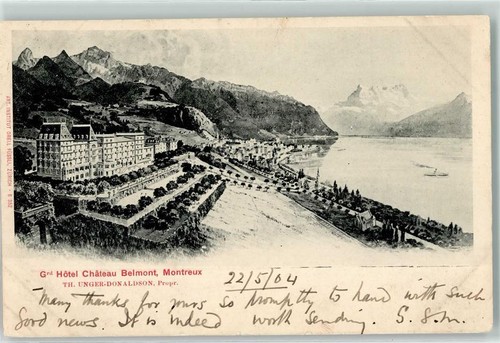 Grd Hôtel Château Belmont, Montreux
TH. UNGER-DONALDSON, Propr.
22/5/04
Many thanks for yours so promptly to hand with such
good news. It is indeed worth sending. S.S.M.
ART. INSTITUT ORELL FÜSSLI, ZÜRICH